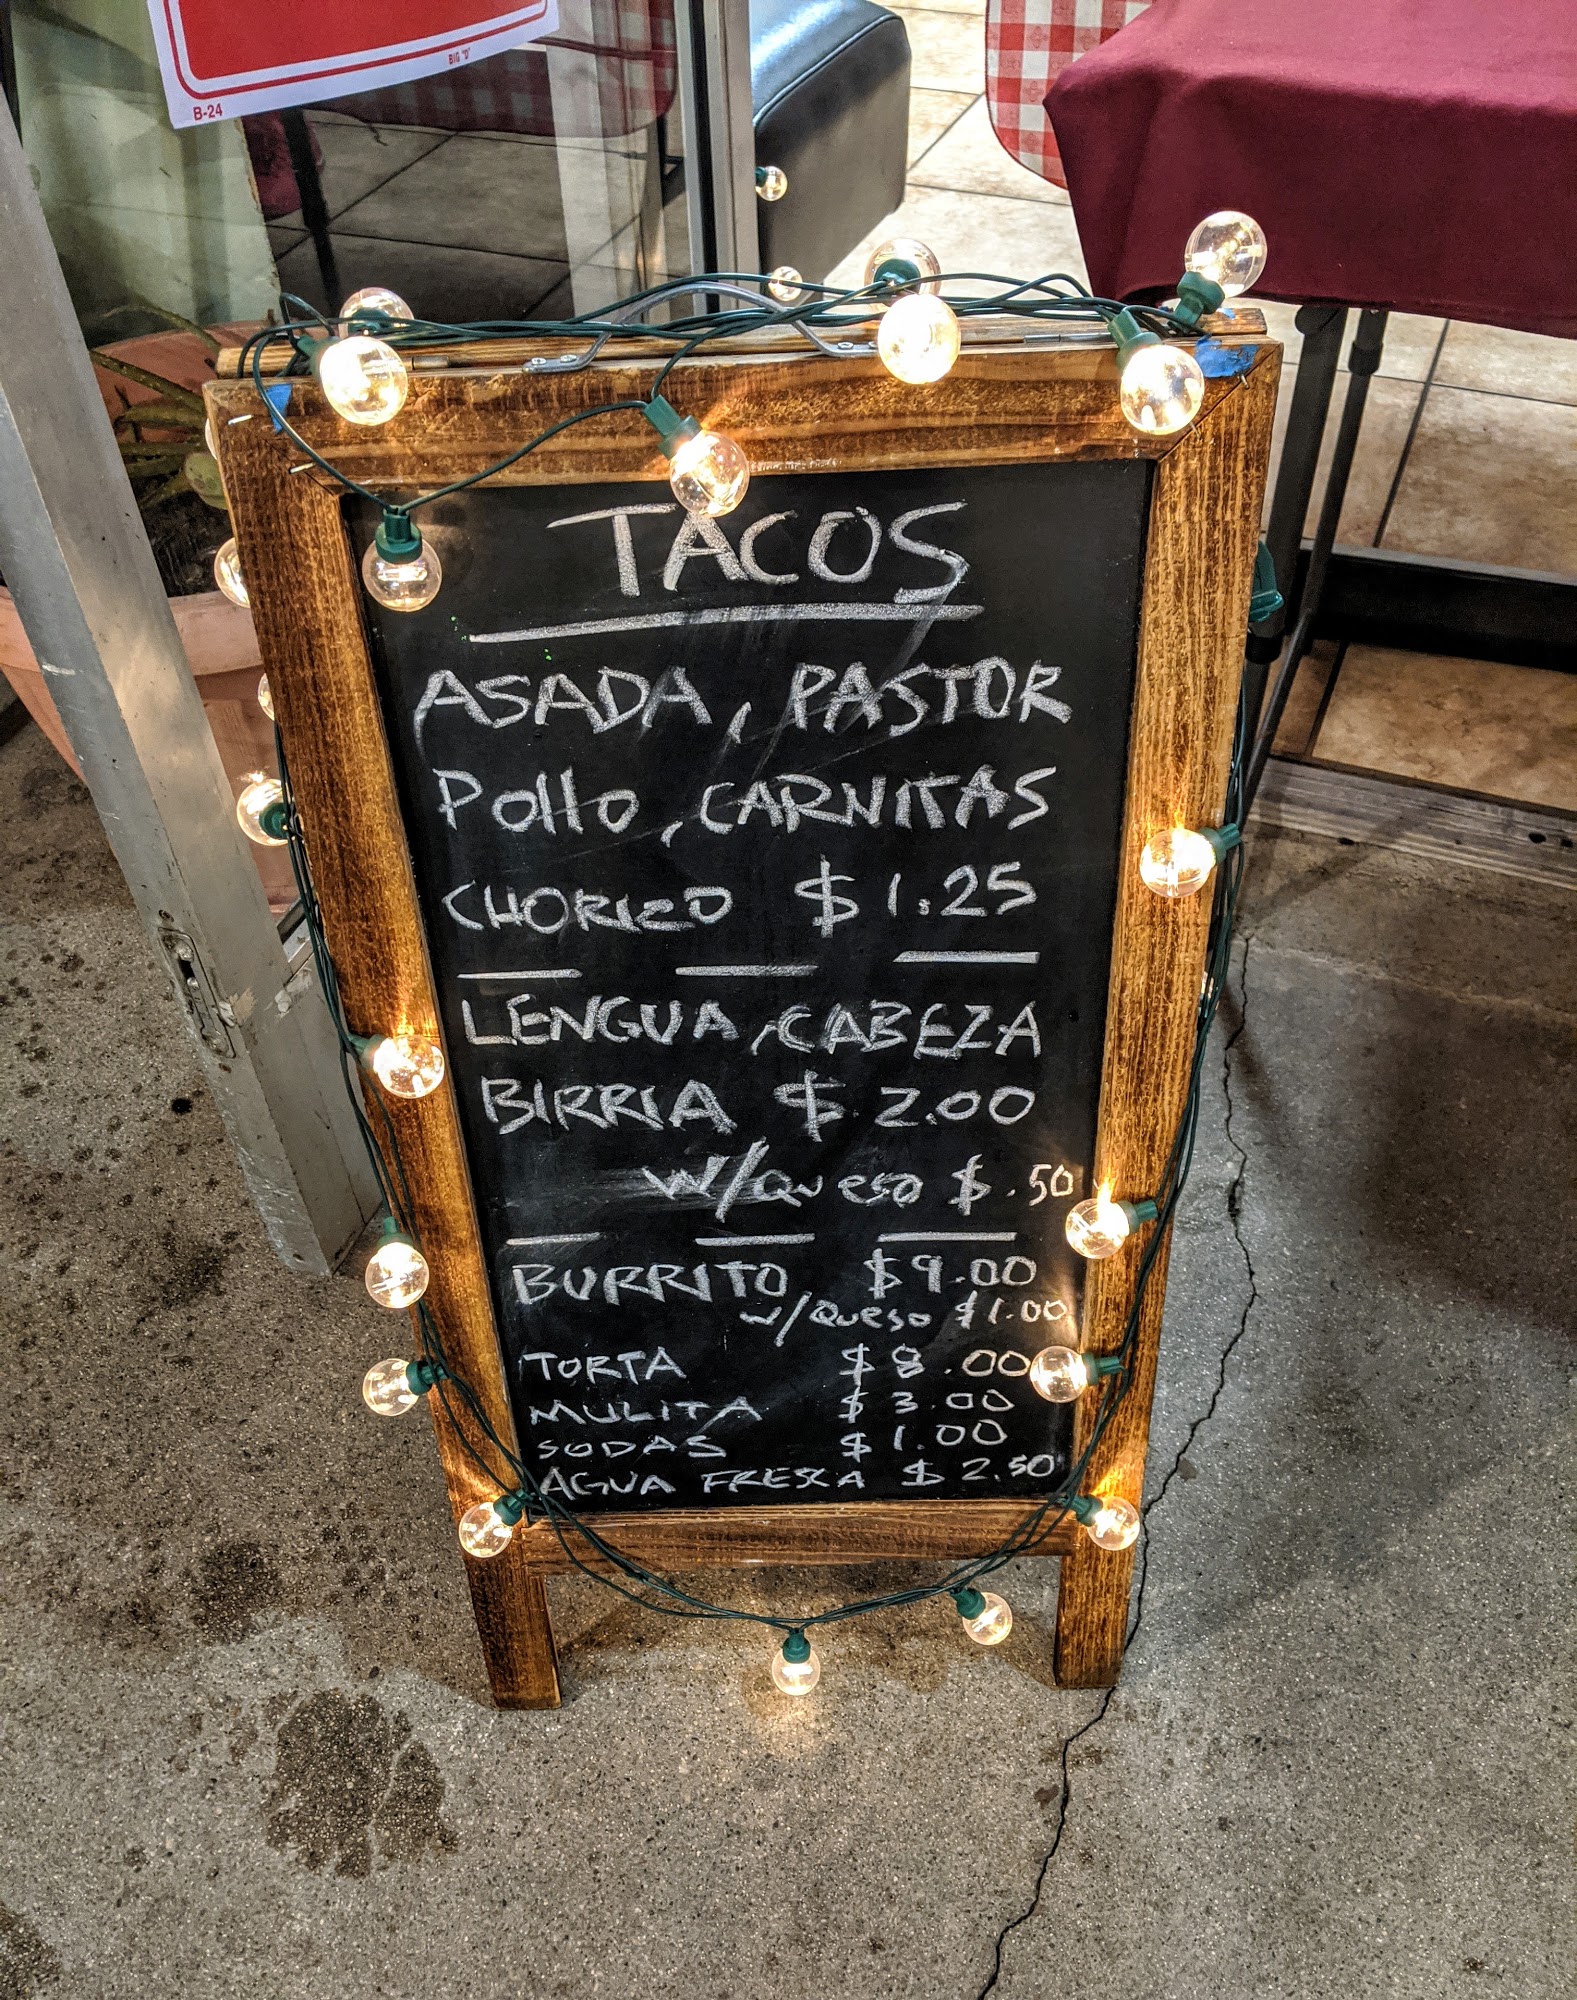 BIG "D"
B-24
TACOS
ASADA, PASTOR
Pollo, CARNITAS
CHORIZO $1.25
LENGUA, CABEZA
BIRRIA $2.00
w/Queso $.50
BURRITO $9.00
w/Queso $1.00
TORTA $8.00
MULITA $3.00
SODAS $1.00
AGUA FRESCA $2.50